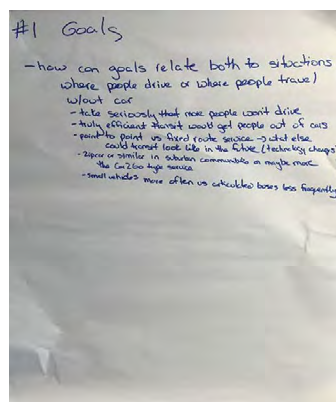 #1 Goals
- how can goals relate both to situations
where people drive or where people travel
w/out car
- take seriously that more people won't drive
- truly efficient transit would get people out of cars
- point to point vs fixed route service → what else
could transit look like in the future (technology changes)
- Zipcar or similar in suburban communities or maybe more
the Car2Go type service
- small vehicles more often vs articulated buses less frequently